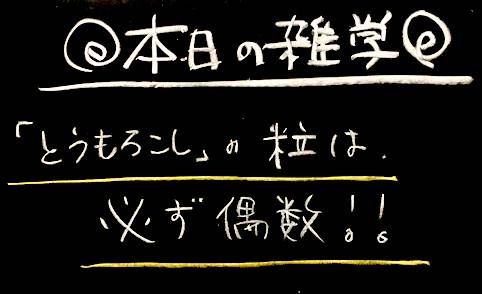 @本日の雑学@
「とうもろこし」の粒は、
必ず偶数!!